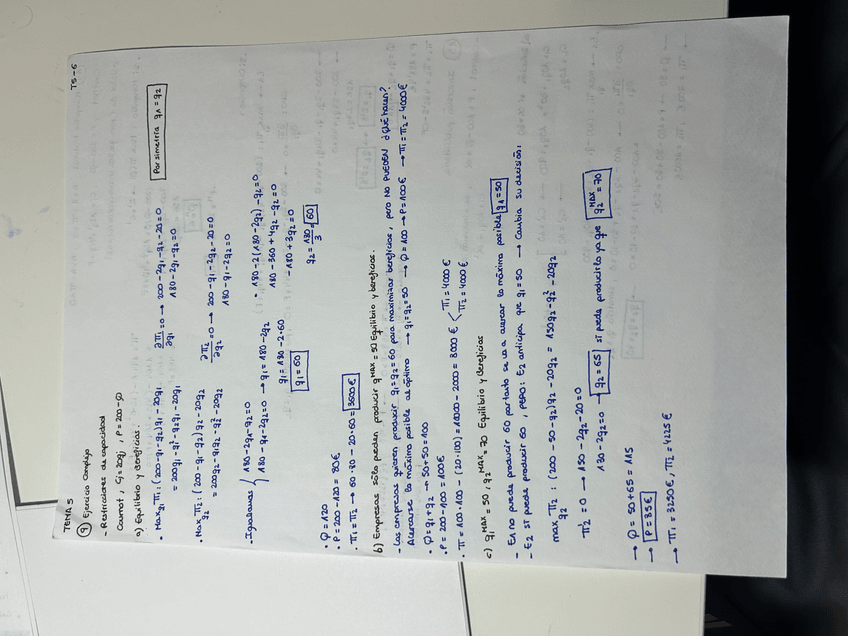 TEMA 5 T5-6
9 Ejercicio Complejo
- Restricciones de capacidad
Cournot, Ci = 20qi, P = 200-Q
a) Equilibrio y beneficios.
• Max q1 π1: (200-q1-q2)q1 - 20q1 ∂π1/∂q1 = 0 → 200-2q1-q2-20=0 Por simetría q1 = q2
= 200q1-q1²-q2q1-20q1 180-2q1-q2=0
• Max q2 π2: (200-q1-q2)q2-20q2 ∂π2/∂q2 = 0 → 200-q1-2q2-20=0
= 200q2-q1q2-q2²-20q2 180-q1-2q2=0
• Igualamos { 180-2q1-q2=0 • 180-2(180-2q2)-q2=0
180-q1-2q2=0 → q1=180-2q2 180-360+4q2-q2=0
q1=180-2·60 -180+3q2=0
q1=60 q2=180/3=60
• Q=120
• P=200-120=80€
• π1=π2 → 60·80-20·60= 3600€
b) Empresas sólo pueden producir q^MAX=50 Equilibrio y beneficios.
- Las empresas quieren producir q1=q2=60 para maximizar beneficios, pero NO PUEDEN ¿Qué hacen?
Acercarse lo máximo posible al óptimo → q1=q2=50 → Q=100 → P=100€ → π1=π2=4000€
• Q=q1+q2 → 50+50=100
• P=200-100=100€
• π=100·100-(20·100)=10000-2000=8000€ < π1=4000€
π2=4000€
c) q1^MAX=50, q2^MAX=70 Equilibrio y beneficios
- E1 no puede producir 60 por tanto se va a acercar lo máximo posible q1=50
- E2 sí puede producir 60, PERO: E2 anticipa que q1=50 → Cambia su decisión:
max q2 π2: (200-50-q2)q2-20q2 = 150q2-q2²-20q2
π2'=0 → 150-2q2-20=0
130-2q2=0 → q2=65 sí puede producirlo ya que q2^MAX=70
→ Q=50+65=115
→ P=85€
→ π1=3250€, π2=4225€